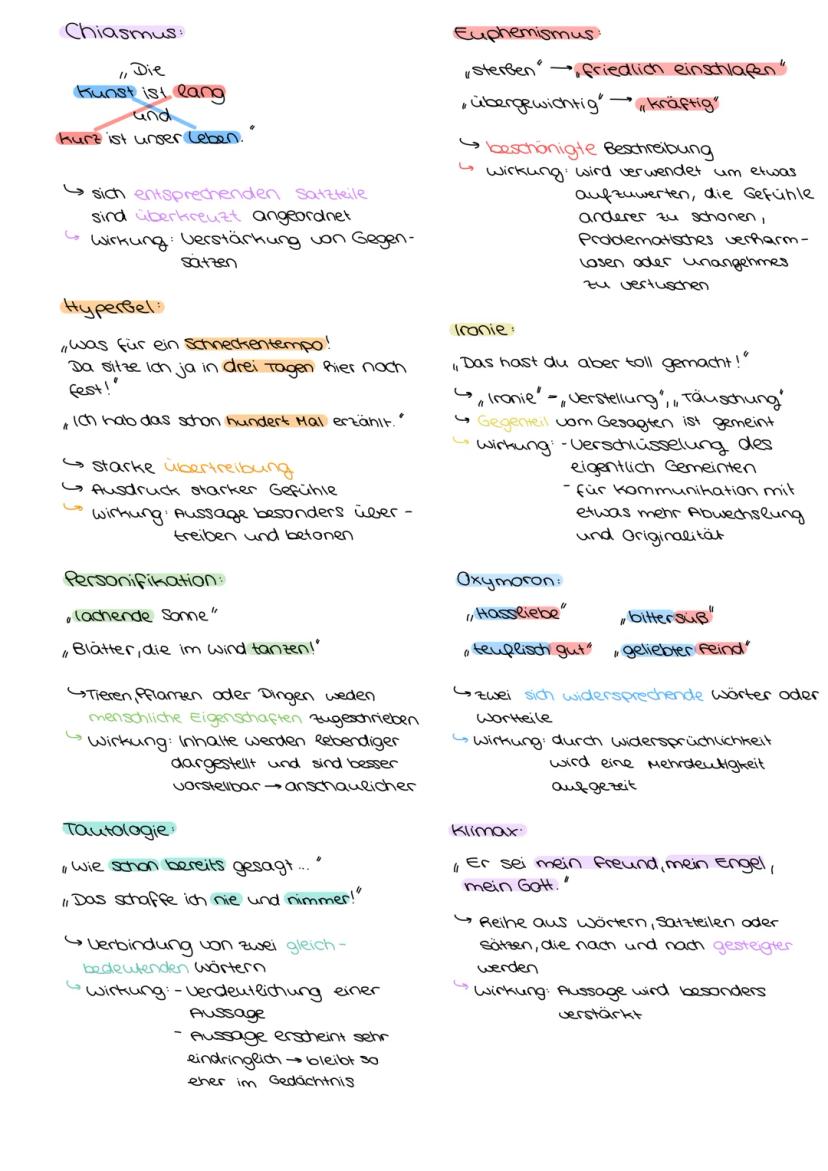 Chiasmus:
„Die
Kunst ist lang
und
kurz ist unser Leben."
↳ sich entsprechenden Satzteile
sind überkreuzt angeordnet
↳ Wirkung: Verstärkung von Gegen-
sätzen
Hyperbel:
„Was für ein Schneckentempo!
Da sitze Ich ja in drei Tagen hier noch
fest!"
„Ich hab das schon hundert Mal erzählt."
↳ starke Übertreibung
↳ Ausdruck starker Gefühle
↳ Wirkung: Aussage besonders über-
treiben und betonen
Personifikation:
„lachende Sonne"
„Blätter, die im Wind tanzen!"
↳ Tieren, Pflanzen oder Dingen weden
menschliche Eigenschaften zugeschrieben
↳ Wirkung: Inhalte werden lebendiger
dargestellt und sind besser
vorstellbar → anschaulicher
Tautologie:
„Wie schon bereits gesagt..."
„Das schaffe ich nie und nimmer!"
↳ Verbindung von zwei gleich-
bedeutenden Wörtern
↳ Wirkung: - Verdeutlichung einer
Aussage
- Aussage erscheint sehr
eindringlich → bleibt so
eher im Gedächtnis
Euphemismus:
„sterben" → „friedlich einschlafen"
„übergewichtig" → „kräftig"
↳ beschönigte Beschreibung
↳ Wirkung: wird verwendet um etwas
aufzuwerten, die Gefühle
anderer zu schonen,
Problematisches verharm-
losen oder unangehmes
zu vertuschen
Ironie:
„Das hast du aber toll gemacht!"
↳ „Ironie" - „Verstellung", „Täuschung"
↳ Gegenteil vom Gesagten ist gemeint
↳ Wirkung: - Verschlüsselung des
eigentlich Gemeinten
- für Kommunikation mit
etwas mehr Abwechslung
und Originalität
Oxymoron:
„Hassliebe" „bittersüß"
„teuflisch gut" „geliebter Feind"
↳ zwei sich widersprechende Wörter oder
Wortteile
↳ Wirkung: durch Widersprüchlichkeit
wird eine Mehrdeutigkeit
aufgezeit
Klimax:
„Er sei mein Freund, mein Engel,
mein Gott."
↳ Reihe aus Wörtern, Satzteilen oder
Sätzen, die nach und nach gesteigter
werden
↳ Wirkung: Aussage wird besonders
verstärkt